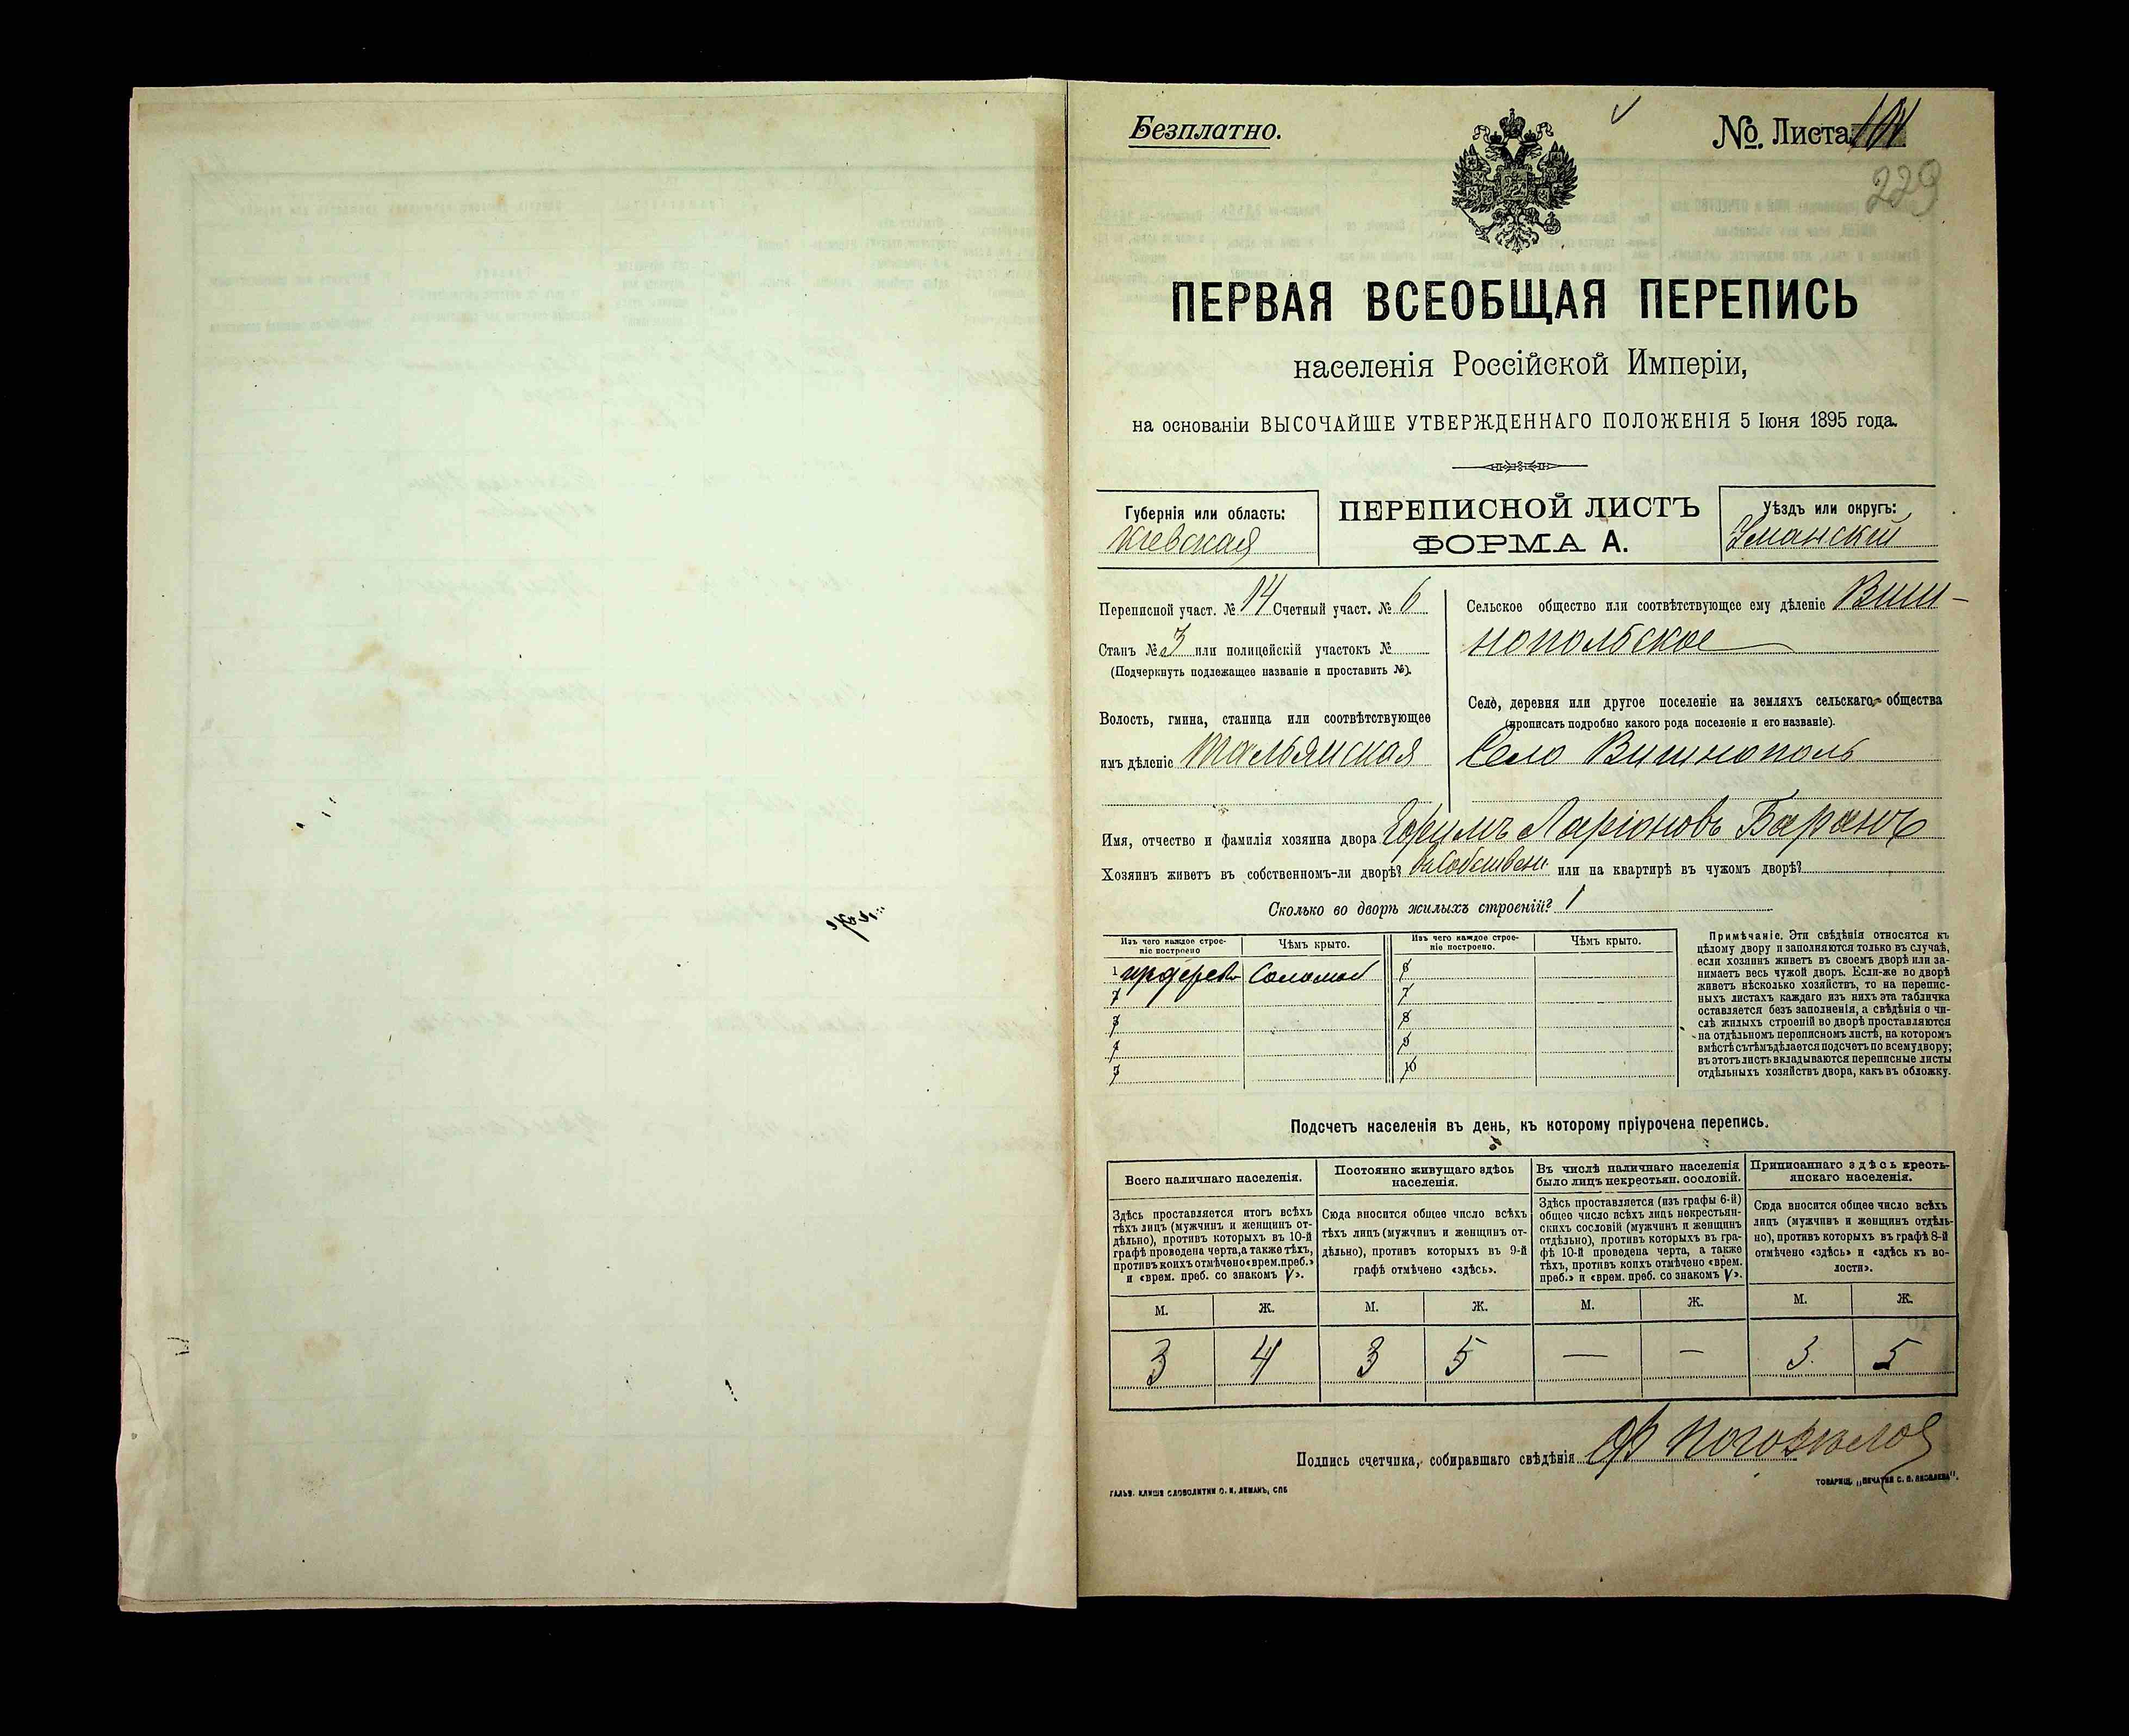 Безплатно.
№ Листа 101
229
ПЕРВАЯ ВСЕОБЩАЯ ПЕРЕПИСЬ
населенія Россійской Имперіи,
на основаніи ВЫСОЧАЙШЕ УТВЕРЖДЕННАГО ПОЛОЖЕНІЯ 5 Іюня 1895 года.
Губернія или область:
Кіевская
ПЕРЕПИСНОЙ ЛИСТЪ
ФОРМА А.
Уѣздъ или округъ:
Уманскій
Переписной участ. № 14 Счетный участ. № 6
Станъ № 3 или полицейскій участокъ №
(Подчеркнуть подлежащее названіе и проставить №).
Волость, гмина, станица или соотвѣтствующее
имъ дѣленіе Тальянская
Сельское общество или соотвѣтствующее ему дѣленіе Виш-
нопольское
Село, деревня или другое поселеніе на земляхъ сельскаго общества
(прописать подробно какого рода поселеніе и его названіе).
Село Вишнополь
Имя, отчество и фамилія хозяина двора Ларіоновъ Баранъ
Хозяинъ живетъ въ собственномъ-ли дворѣ? или на квартирѣ въ чужомъ дворѣ?
Сколько во дворѣ жилыхъ строеній? 1
Изъ чего каждое строе-
ніе построено
Чѣмъ крыто.
Изъ чего каждое строе-
ніе построено.
Чѣмъ крыто.
1 Соломой
2
3
4
5
6
7
8
9
10
Примѣчаніе. Эти свѣдѣнія относятся къ
цѣлому двору и заполняются только въ случаѣ,
если хозяинъ живетъ въ своемъ дворѣ или за-
нимаетъ весь чужой дворъ. Если-же во дворѣ
живетъ нѣсколько хозяйствъ, то на перепис-
ныхъ листахъ каждаго изъ нихъ эта табличка
оставляется безъ заполненія, а свѣдѣнія о чи-
слѣ жилыхъ строеній во дворѣ проставляются
на отдѣльномъ переписномъ листѣ, на которомъ
вмѣстѣ съ тѣмъ дѣлается подсчетъ по всему двору;
въ этотъ листъ вкладываются переписные листы
отдѣльныхъ хозяйствъ двора, какъ въ обложку.
Подсчетъ населенія въ день, къ которому пріурочена перепись.
Всего наличнаго населенія.
Здѣсь проставляется итогъ всѣхъ
тѣхъ лицъ (мужчинъ и женщинъ от-
дѣльно), противъ которыхъ въ 10-й
графѣ проведена черта, а также тѣхъ,
противъ коихъ отмѣчено «врем. преб.»
и «врем. преб. со знакомъ V».
Постоянно живущаго здѣсь
населенія.
Сюда вносится общее число всѣхъ
тѣхъ лицъ (мужчинъ и женщинъ от-
дѣльно), противъ которыхъ въ 9-й
графѣ отмѣчено «здѣсь».
Въ числѣ наличнаго населенія
было лицъ некрестьян. сословій.
Здѣсь проставляется (изъ графы 6-й)
общее число всѣхъ лицъ некрестьян-
скихъ сословій (мужчинъ и женщинъ
отдѣльно), противъ которыхъ въ гра-
фѣ 10-й проведена черта, а также
тѣхъ, противъ коихъ отмѣчено «врем.
преб.» и «врем. преб. со знакомъ V».
Приписаннаго здѣсь кресть-
янскаго населенія.
Сюда вносится общее число всѣхъ
лицъ (мужчинъ и женщинъ отдѣль-
но), противъ которыхъ въ графѣ 8-й
отмѣчено «здѣсь» и «здѣсь къ во-
лости».
М. Ж. М. Ж. М. Ж. М. Ж.
3 4 3 5 — — 3. 5
Подпись счетчика, собиравшаго свѣдѣнія
ГАЛЬВ. КЛИШЕ СЛОВОЛИТНИ О. И. ЛЕМАНЪ, СПБ
ТОВАРИЩ. „ПЕЧАТНЯ С. П. ЯКОВЛЕВА".